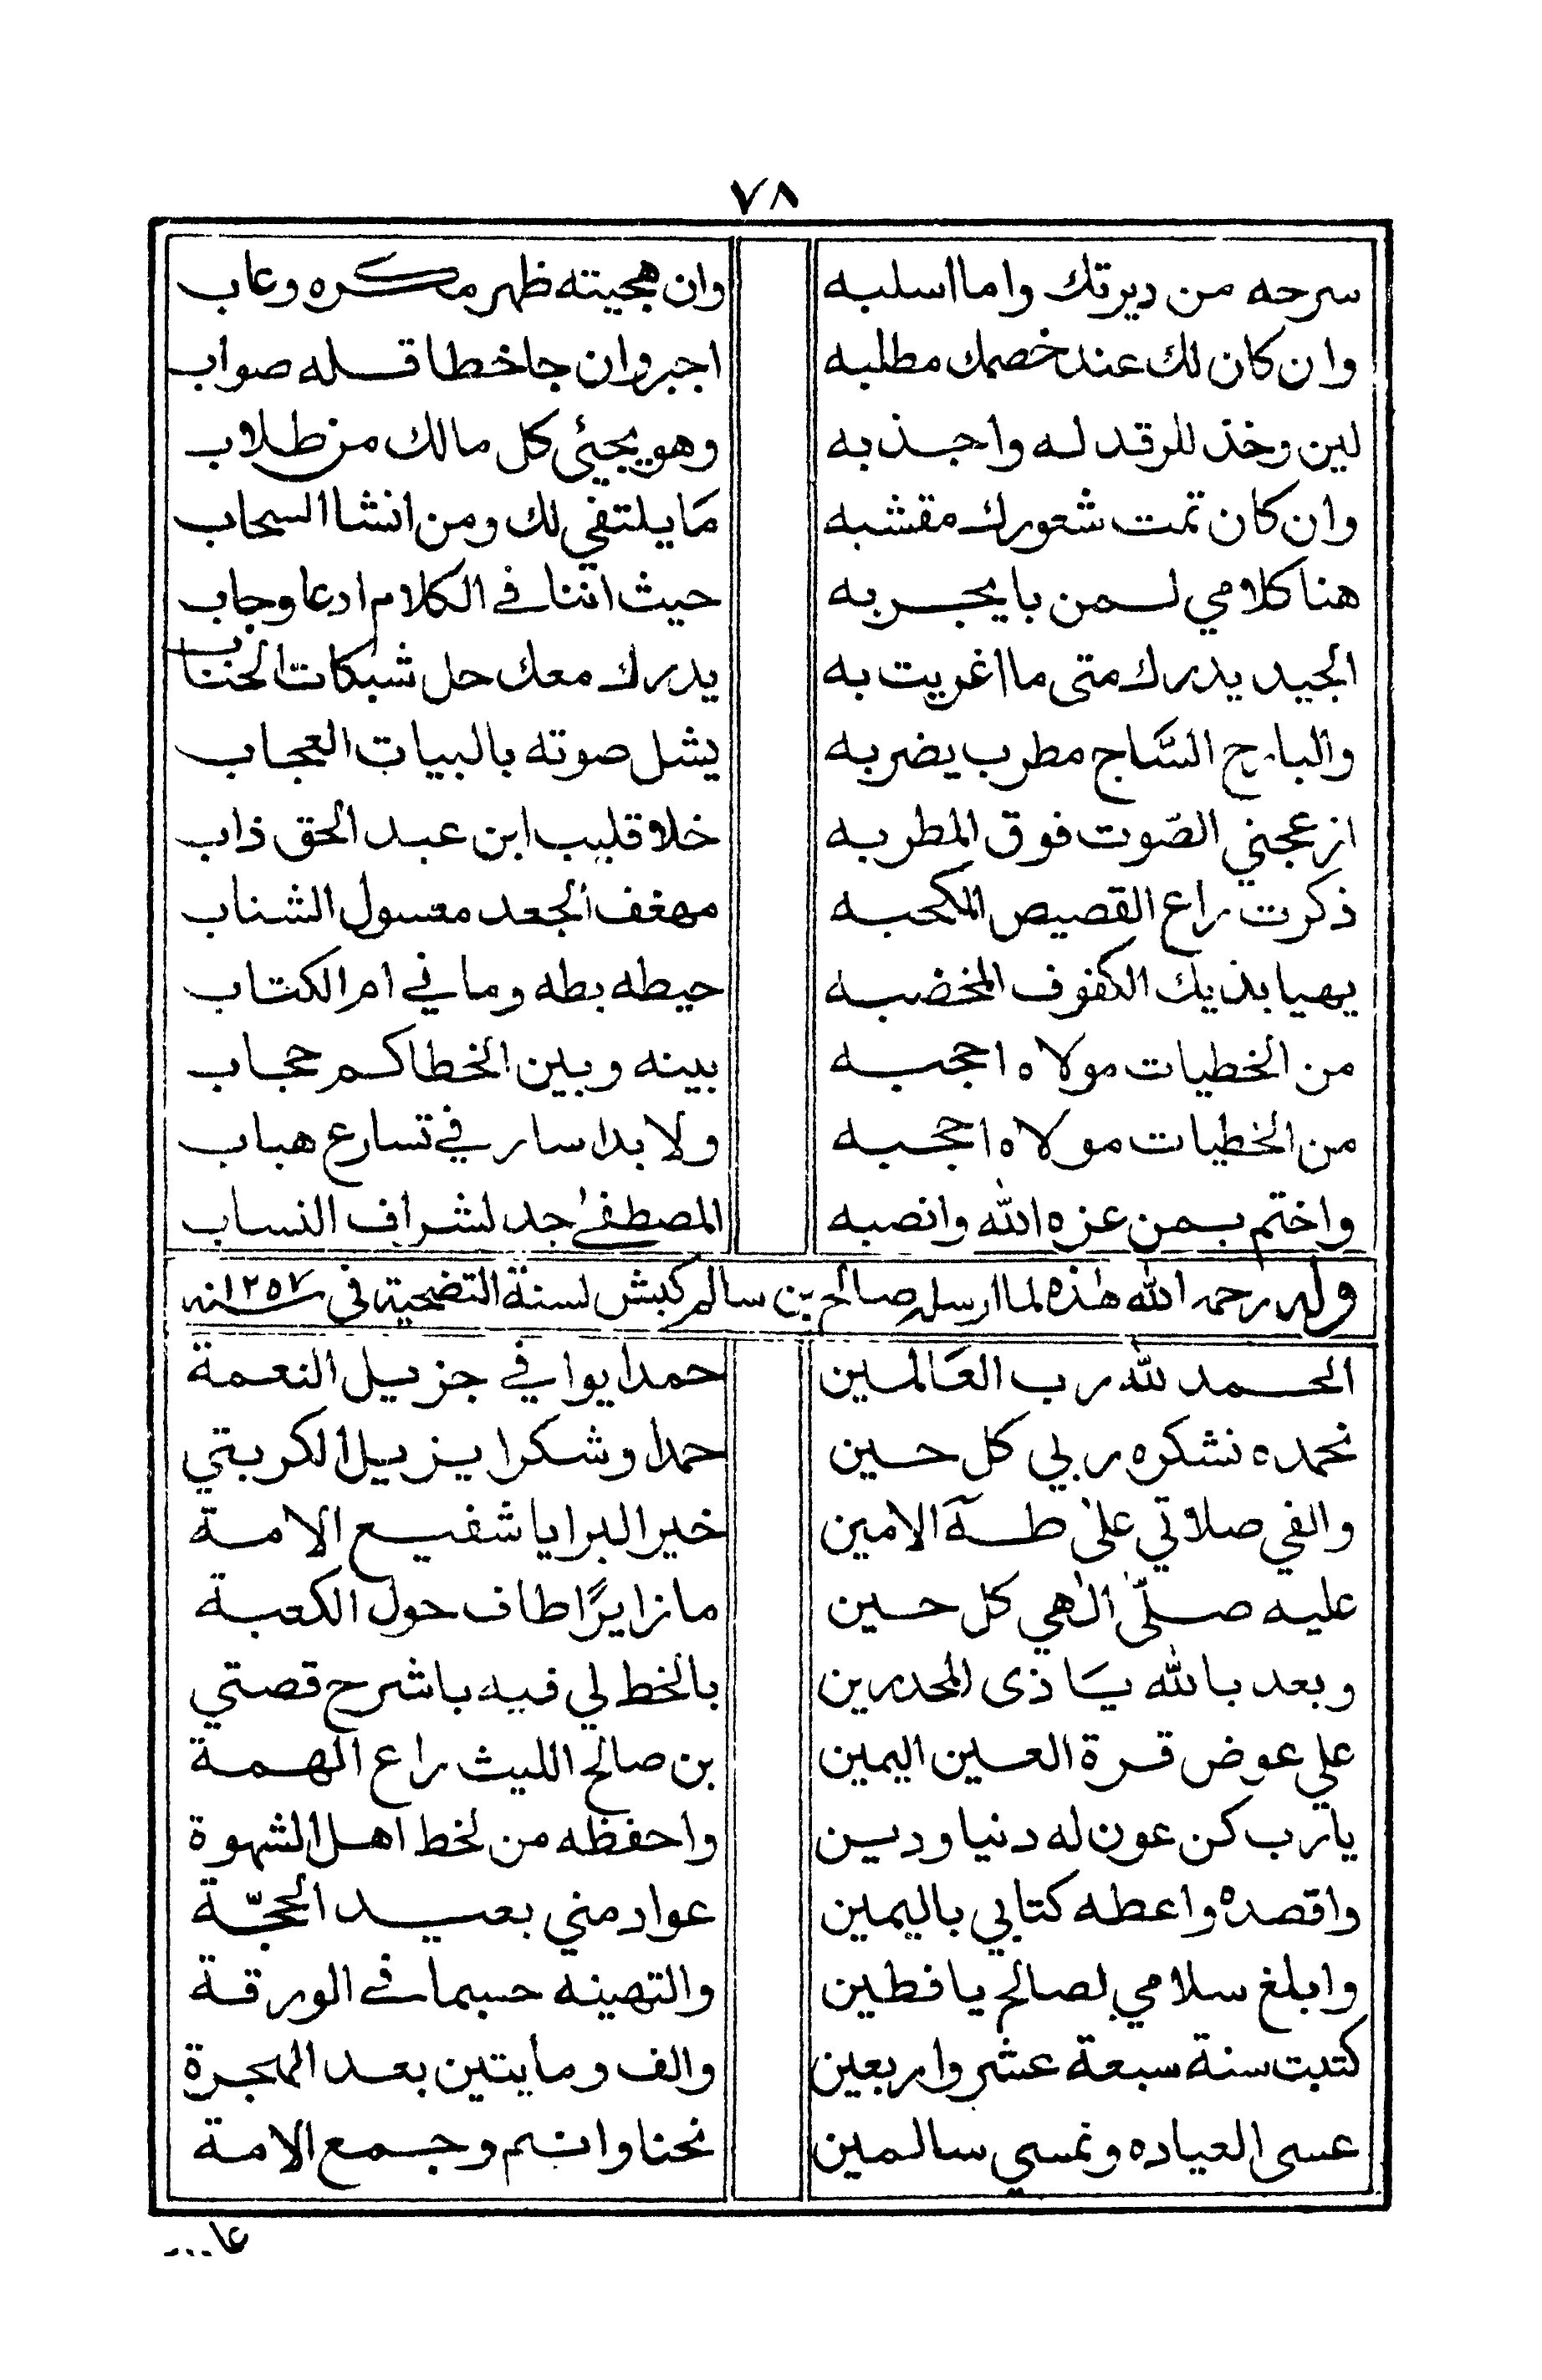 ٧٨
سرحه من ديرتك واما اسلبه وان هجيته ظهر مكره وعاب
وان كان لك عند خصمك مطلبه اجبر وان جا خطا قله صواب
لين وخذ للرقد له واجذبه وهو يجيئ كل مالك من طلاب
وان كان تمت شعورك مقشبه مَا يلتفي لك ومن انشا السحاب
هنا كلامي لمن با يجربه حيث اننا في الكلام ادعا وجاب
الجيد يدرك متى ما اغريت به يدرك معك حل شبكات الخنناب
والبارح السَّاج مطرب يضربه يشل صوته بالبيات العجاب
ازعجني الصَّوت فوق المطربه خلا قليب ابن عبد الحق ذاب
ذكرت راع القصيص المكحبه مهغف الجعد معسول الشناب
يهيا بذيك الكفوف المخضبه حيطه بطه وما في ام الكتاب
من الخطيات مولاه احجبه بينه وبين الخطا كم حجاب
من الخطيات مولاه احجبه ولا بدا سار في تسارع هباب
واختم بمن عزه الله وانصبه المصطفىٰ جد لشراف النساب
وله رحمه الله هٰذه لما ارسله صالح بن سالم كبش لسنة التضحية في سنه ١٢٥٧
الحمد لله رب العَالمين حمدا يوافي جزيل النعمة
نحمده نشكره ربي كل حين حمدا وشكرا يزيل الكربتي
والفي صلاتي علىٰ طـٓه الامين خير البرايا شفيع الامة
عليه صلّى الٰهي كل حين ما زايرًا طاف حول الكعبة
وبعد بالله يَا ذى المحدرين بالخط لي فيه باشرح قصتي
علي عوض قرة العين اليمين بن صالح الليث راع الهمة
يارب كن عون له دنيا ودين واحفظه من لخط اهل الشهوة
واقصده واعطه كتابي باليمين عواد مني بعيد الحجّة
وابلغ سلامي لصالح يا فطين والتهينه حسبما في الورقة
كتبت سنة سبعة عشر واربعين والف ومايتين بعد الهجرة
عسى العياده ونمسي سالمين نحنا وانتم وجمع الامة
عا...